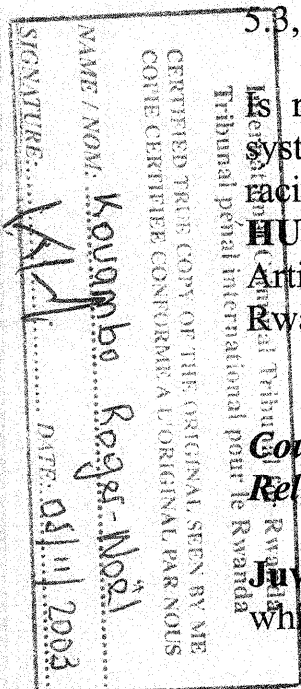 5.3,
Is
syst
raci
HU
Arti
Rwa
Cou
Rel
Juv
whi
International Criminal Tribunal Rwanda
Tribunal pénal international pour le Rwanda
CERTIFIED TRUE COPY OF THE ORIGINAL SEEN BY ME
COPIE CERTIFIEE CONFORME A L'ORIGINAL PAR NOUS
NAME / NOM: Kouambo Roger-Noël
SIGNATURE: DATE: 05/11/2003